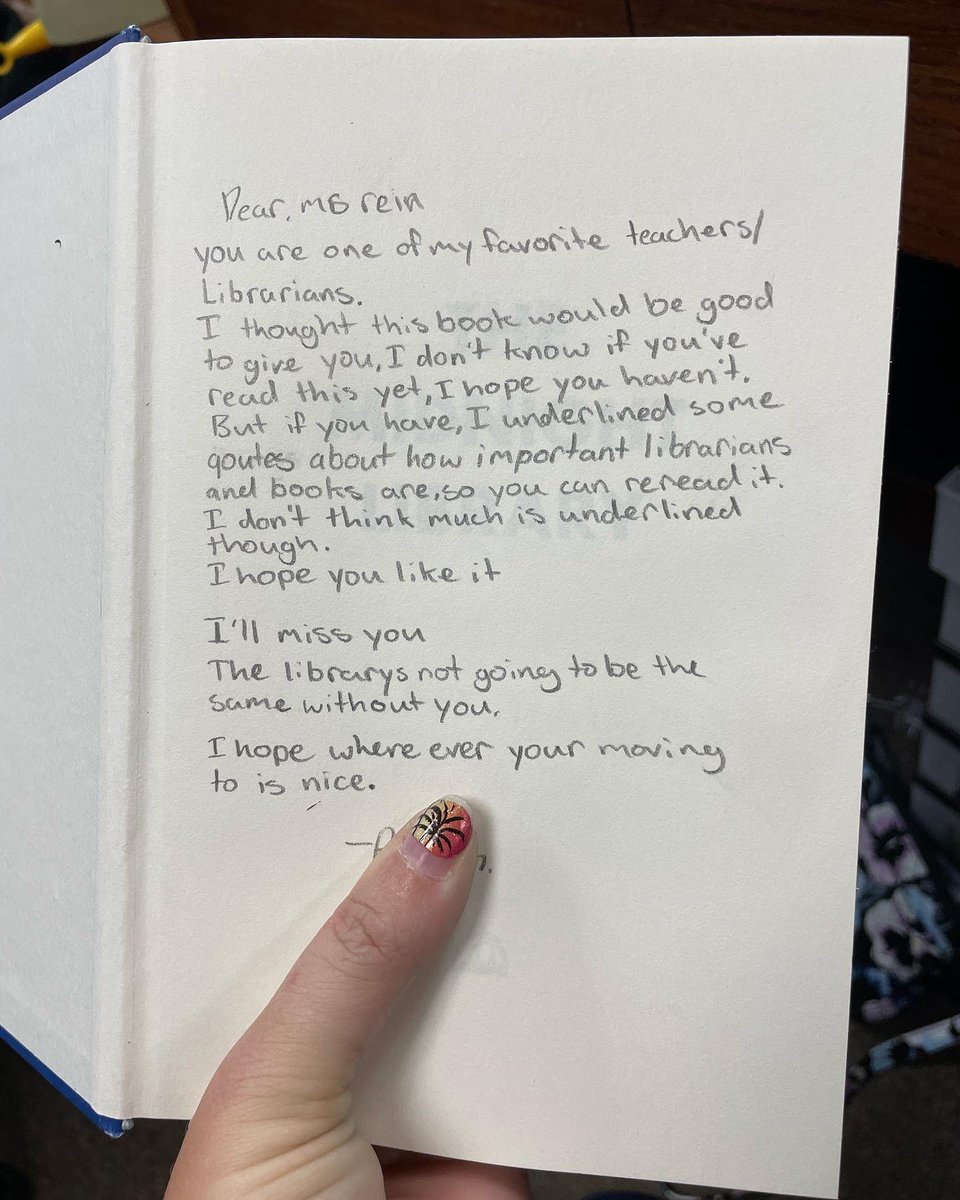 Dear, MS rein
you are one of my favorite teachers/
Librarians.
I thought this book would be good
to give you, I don't know if you've
read this yet, I hope you haven't.
But if you have, I underlined some
qoutes about how important librarians
and books are, so you can reread it.
I don't think much is underlined
though.
I hope you like it
I'll miss you
The librarys not going to be the
same without you.
I hope where ever your moving
to is nice.